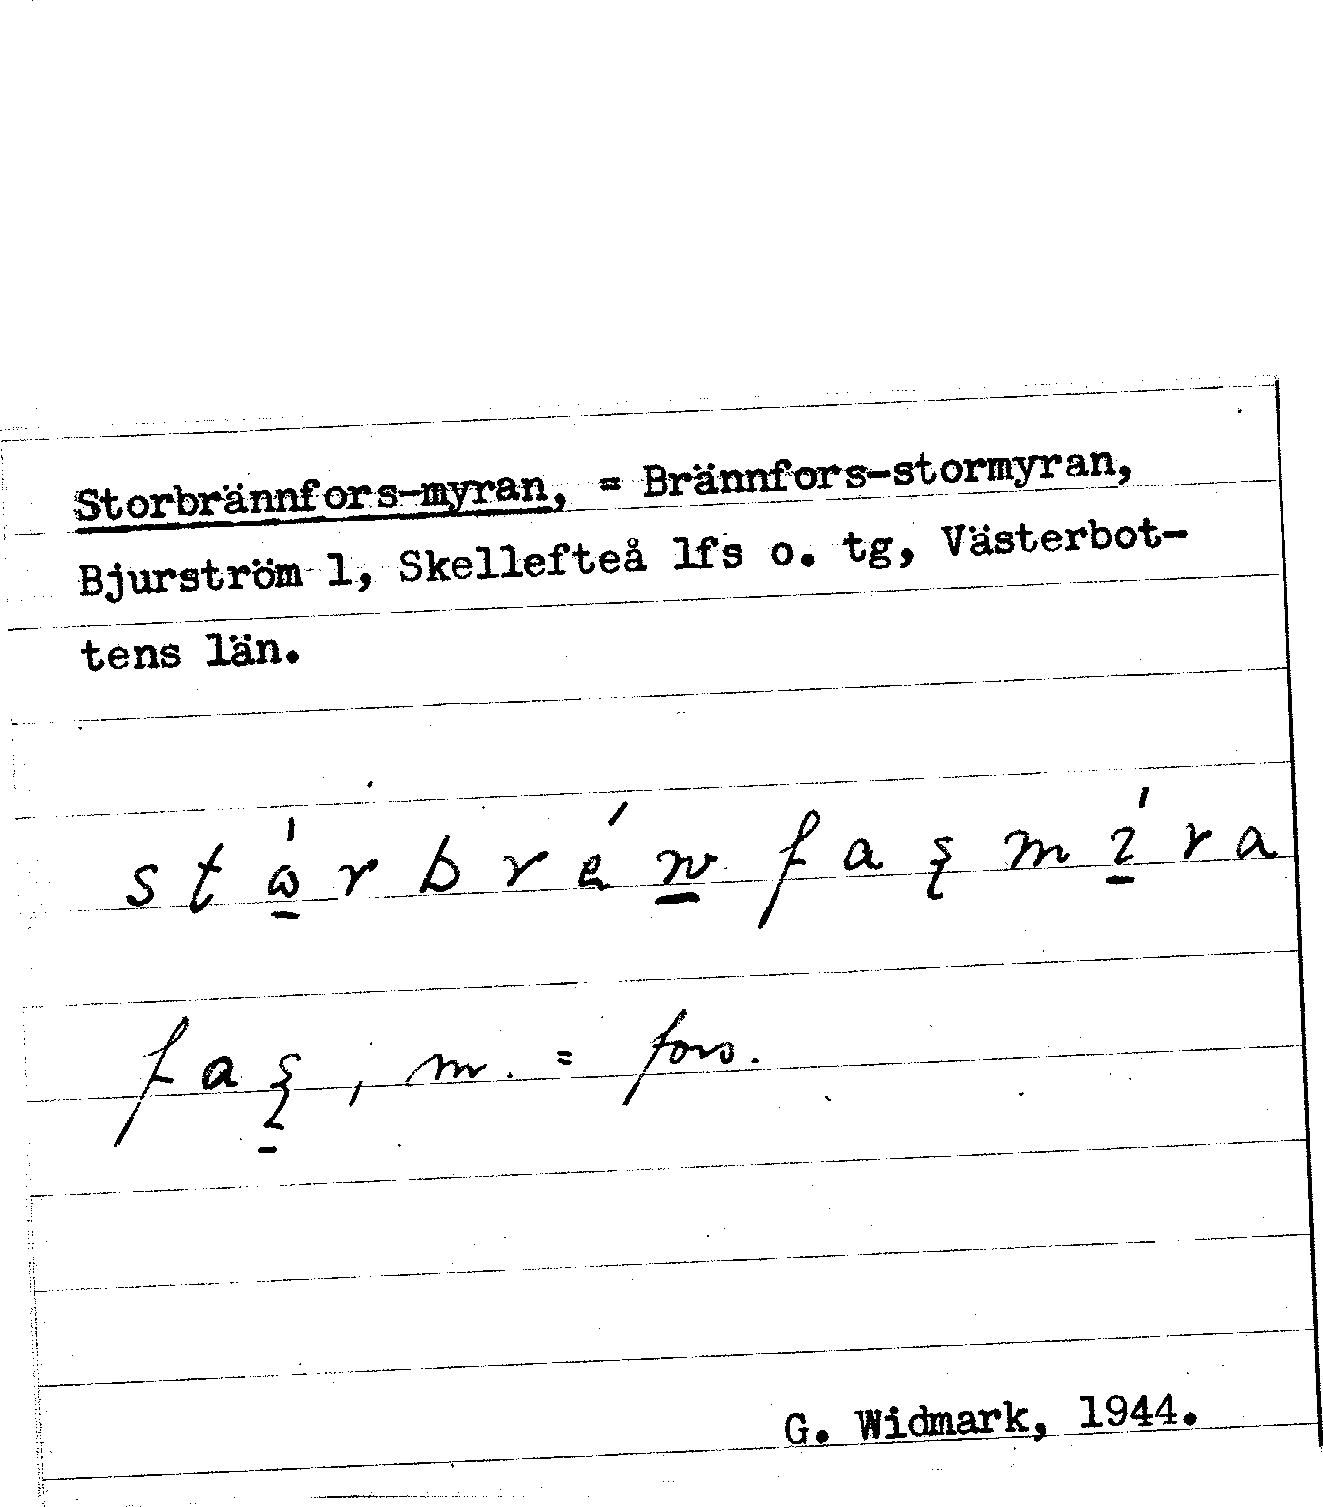 Storbrännfors-myran, = Brännfors-stormyran,
Bjurström 1, Skellefteå lfs o. tg, Västerbot-
tens län.
, m. = fors.
G. Widmark, 1944.